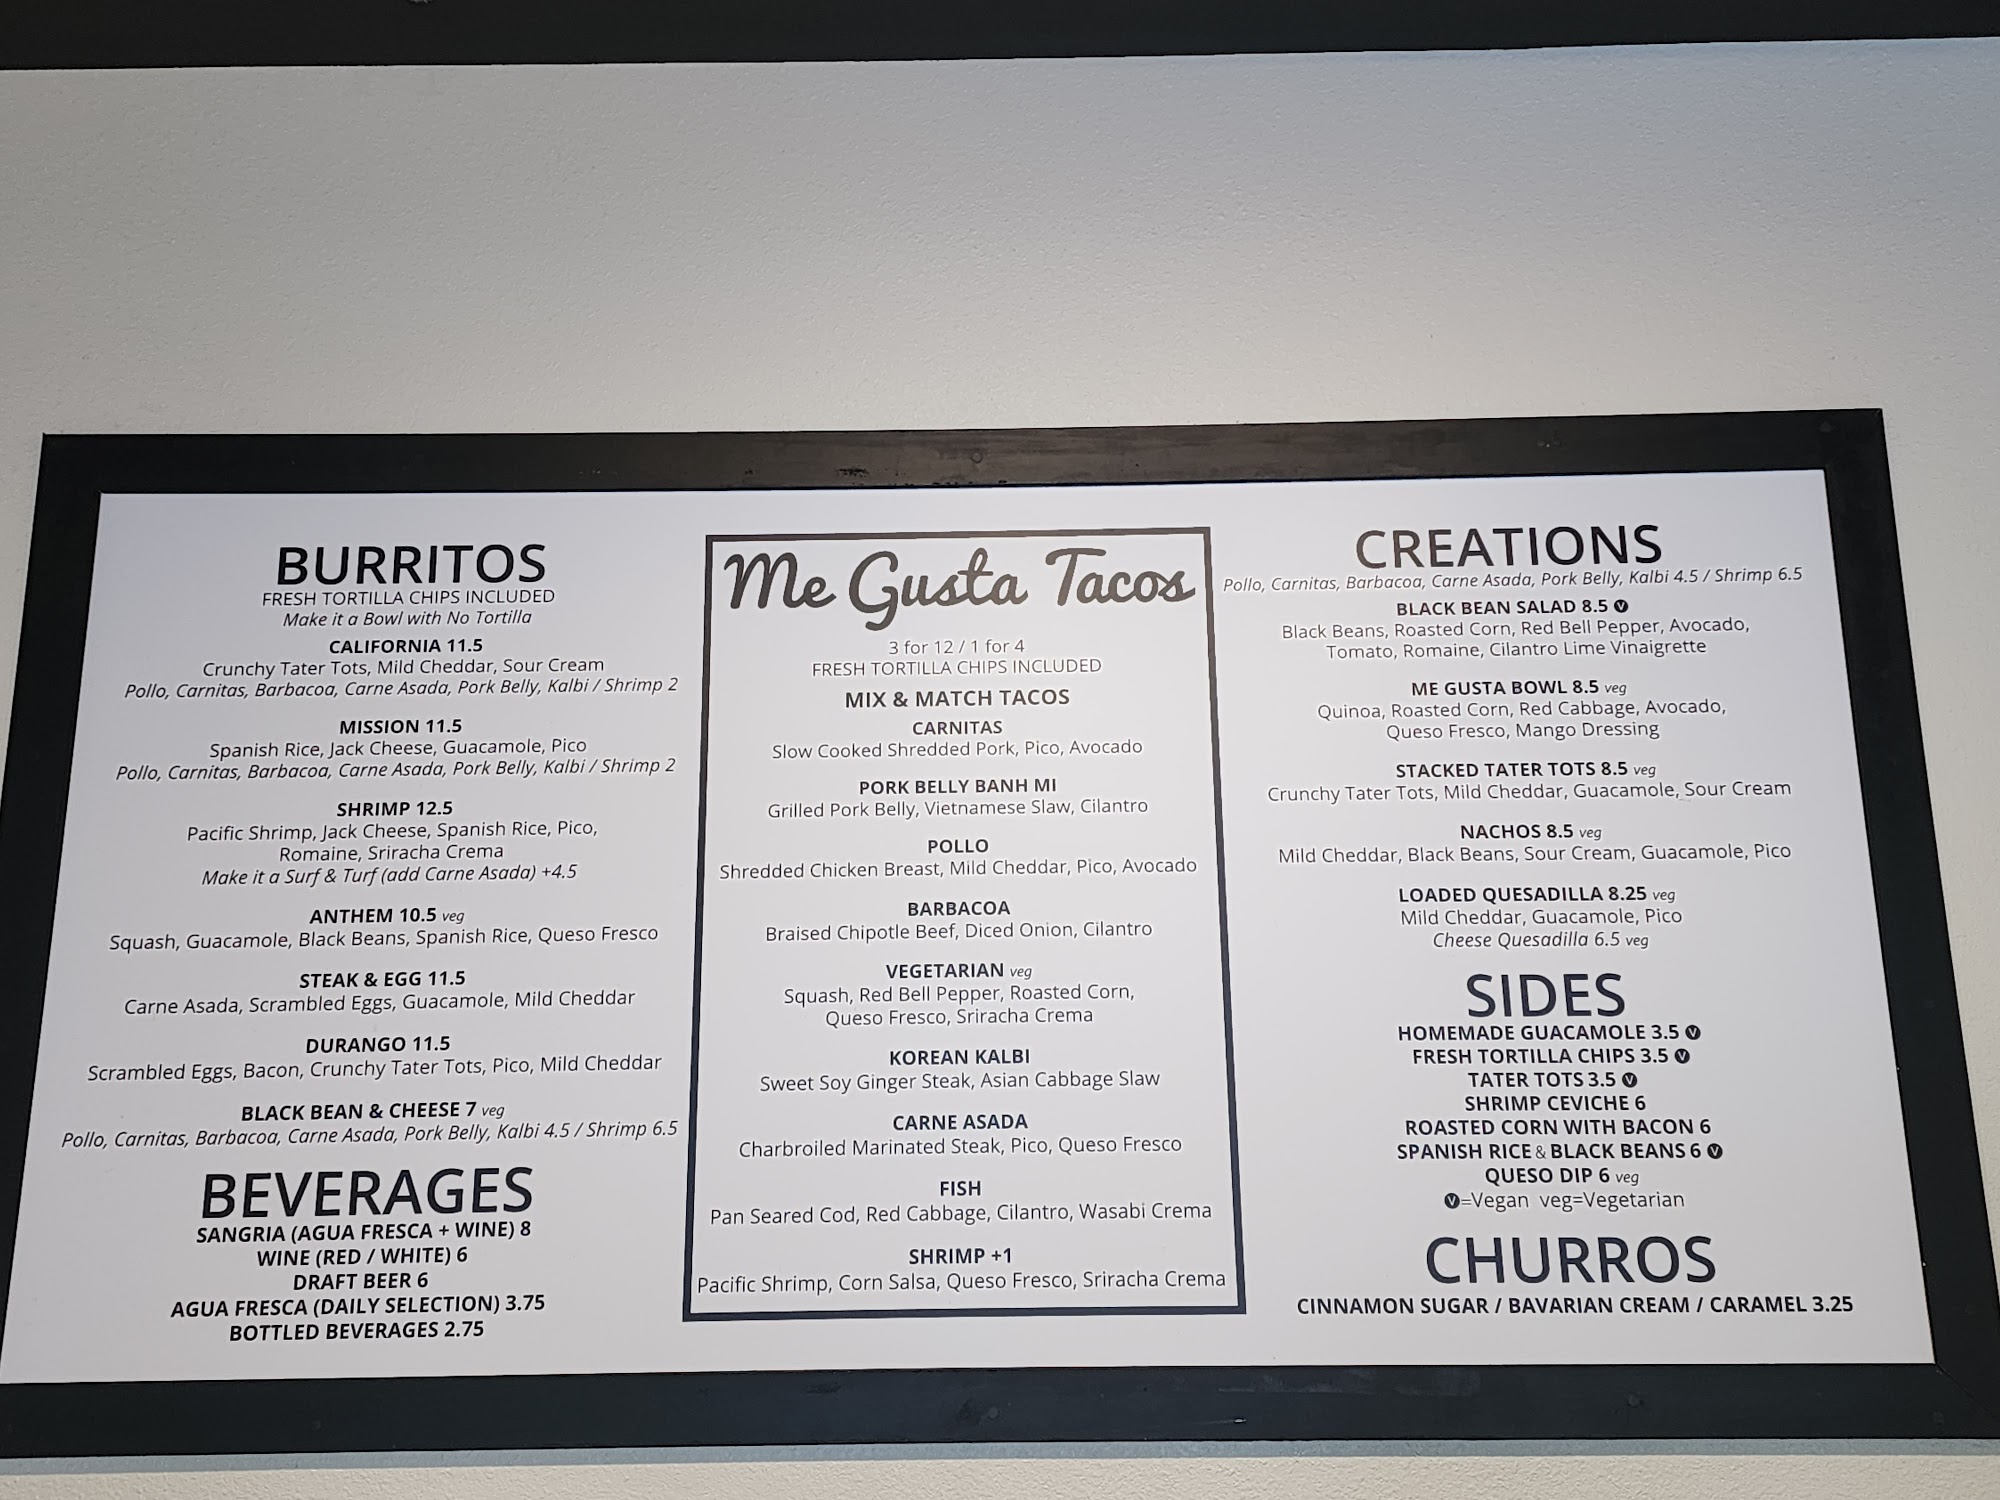 BURRITOS
FRESH TORTILLA CHIPS INCLUDED
Make it a Bowl with No Tortilla
CALIFORNIA 11.5
Crunchy Tater Tots, Mild Cheddar, Sour Cream
Pollo, Carnitas, Barbacoa, Carne Asada, Pork Belly, Kalbi / Shrimp 2
MISSION 11.5
Spanish Rice, Jack Cheese, Guacamole, Pico
Pollo, Carnitas, Barbacoa, Carne Asada, Pork Belly, Kalbi / Shrimp 2
SHRIMP 12.5
Pacific Shrimp, Jack Cheese, Spanish Rice, Pico,
Romaine, Sriracha Crema
Make it a Surf & Turf (add Carne Asada) +4.5
ANTHEM 10.5 veg
Squash, Guacamole, Black Beans, Spanish Rice, Queso Fresco
STEAK & EGG 11.5
Carne Asada, Scrambled Eggs, Guacamole, Mild Cheddar
DURANGO 11.5
Scrambled Eggs, Bacon, Crunchy Tater Tots, Pico, Mild Cheddar
BLACK BEAN & CHEESE 7 veg
Pollo, Carnitas, Barbacoa, Carne Asada, Pork Belly, Kalbi 4.5 / Shrimp 6.5
BEVERAGES
SANGRIA (AGUA FRESCA + WINE) 8
WINE (RED / WHITE) 6
DRAFT BEER 6
AGUA FRESCA (DAILY SELECTION) 3.75
BOTTLED BEVERAGES 2.75
Me Gusta Tacos
3 for 12 / 1 for 4
FRESH TORTILLA CHIPS INCLUDED
MIX & MATCH TACOS
CARNITAS
Slow Cooked Shredded Pork, Pico, Avocado
PORK BELLY BANH MI
Grilled Pork Belly, Vietnamese Slaw, Cilantro
POLLO
Shredded Chicken Breast, Mild Cheddar, Pico, Avocado
BARBACOA
Braised Chipotle Beef, Diced Onion, Cilantro
VEGETARIAN veg
Squash, Red Bell Pepper, Roasted Corn,
Queso Fresco, Sriracha Crema
KOREAN KALBI
Sweet Soy Ginger Steak, Asian Cabbage Slaw
CARNE ASADA
Charbroiled Marinated Steak, Pico, Queso Fresco
FISH
Pan Seared Cod, Red Cabbage, Cilantro, Wasabi Crema
SHRIMP +1
Pacific Shrimp, Corn Salsa, Queso Fresco, Sriracha Crema
CREATIONS
Pollo, Carnitas, Barbacoa, Carne Asada, Pork Belly, Kalbi 4.5 / Shrimp 6.5
BLACK BEAN SALAD 8.5 V
Black Beans, Roasted Corn, Red Bell Pepper, Avocado,
Tomato, Romaine, Cilantro Lime Vinaigrette
ME GUSTA BOWL 8.5 veg
Quinoa, Roasted Corn, Red Cabbage, Avocado,
Queso Fresco, Mango Dressing
STACKED TATER TOTS 8.5 veg
Crunchy Tater Tots, Mild Cheddar, Guacamole, Sour Cream
NACHOS 8.5 veg
Mild Cheddar, Black Beans, Sour Cream, Guacamole, Pico
LOADED QUESADILLA 8.25 veg
Mild Cheddar, Guacamole, Pico
Cheese Quesadilla 6.5 veg
SIDES
HOMEMADE GUACAMOLE 3.5 V
FRESH TORTILLA CHIPS 3.5 V
TATER TOTS 3.5 V
SHRIMP CEVICHE 6
ROASTED CORN WITH BACON 6
SPANISH RICE & BLACK BEANS 6 V
QUESO DIP 6 veg
V=Vegan veg=Vegetarian
CHURROS
CINNAMON SUGAR / BAVARIAN CREAM / CARAMEL 3.25